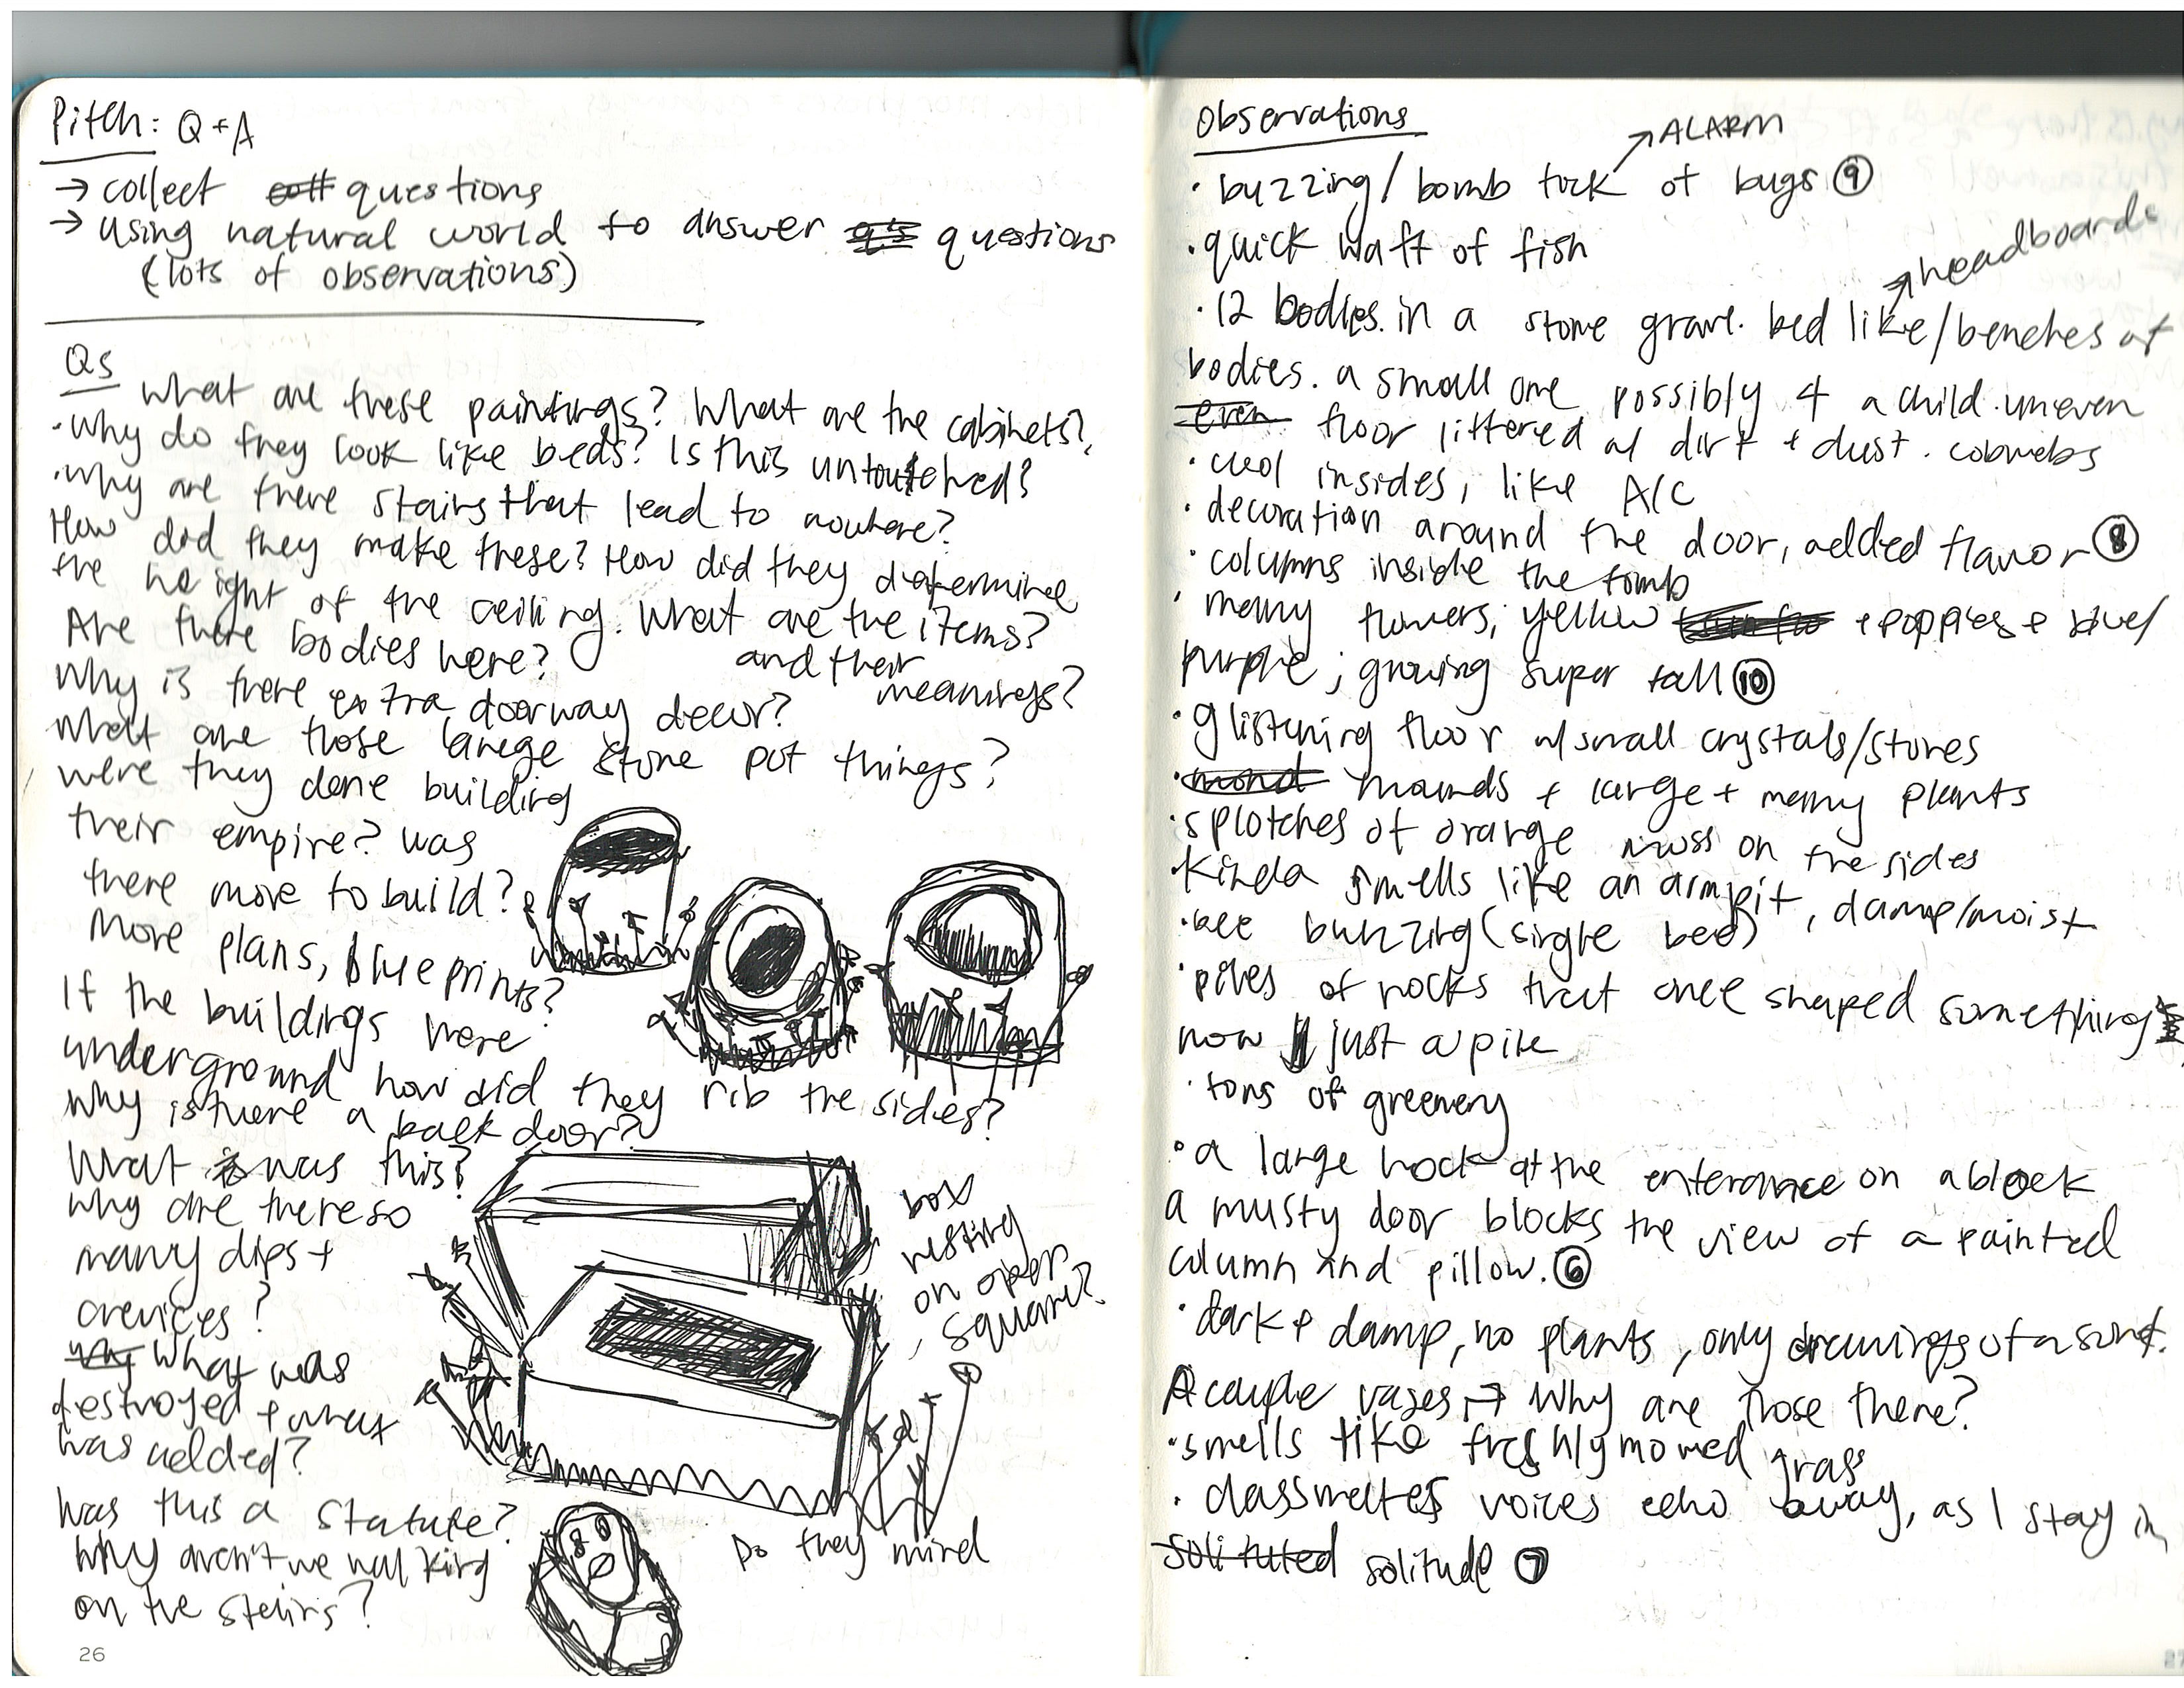 Pitch: Q + A
→ collect questions
→ using natural world to answer questions
(lots of observations)
Qs
What are these paintings? What are the cabinets?
· Why do they look like beds? Is this untouched?
· Why are there stairs that lead to nowhere?
How did they make these? How did they determine
the height of the ceiling. What are the items?
and their
meanings?
Are there bodies here?
Why is there extra doorway decor?
What are those large stone pot things?
were they done building
their empire? was
there more to build?
More plans, blueprints?
If the buildings were
underground how did they rib the sides?
Why is there a back door?
What was this?
why are there so
many dips +
crevices?
What was
destroyed + what
was added?
Was this a statute?
Why aren't we walking
on the stairs?
box
resting
on open
square?
Do they mind
26
Observations
↗ ALARM
· buzzing / bomb tick of bugs ⑨
· quick waft of fish
↗ headboards
· 12 bodies. in a stone grave. bed like/benches of
bodies. a small one possibly 4 a child. uneven
even floor littered w/ dirt + dust. cobwebs
· cool insides, like A/C
· decoration around the door, added flavor ⑧
· columns inside the tomb
· many flowers, yellow + poppies + blue/
purple; growing super tall ⑩
· glistening floor w/ small crystals/stones
· mond mounds + large + many plants
· splotches of orange moss on the sides
· kinda smells like an armpit, damp/moist
· bee buzzing (single bee)
· piles of rocks that once shaped something
now just a pile
· tons of greenery
· a large rock at the enterance on a block
a musty door blocks the view of a painted
column and pillow. ⑥
· dark + damp, no plants, only drawings of a sort.
A couple vases → Why are those there?
· smells like freshly mowed grass
· classmates voices echo away, as I stay in
solituted solitude ⑦
27